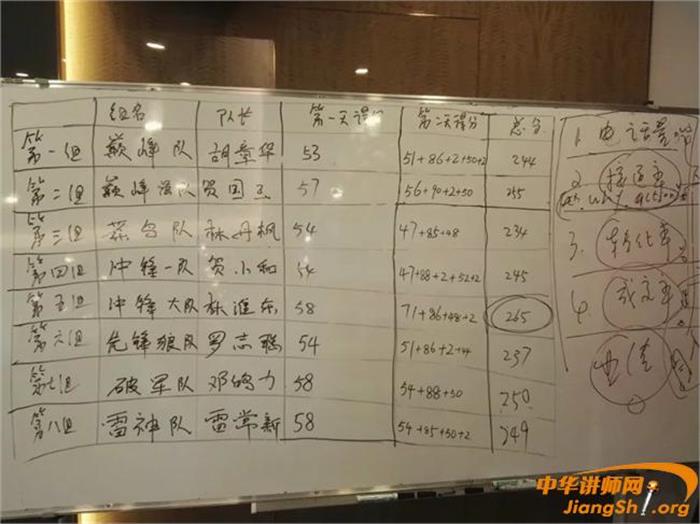 组名 队长 第一天得分 第二天得分 总分
第一组 巅峰队 胡章华 53 51+86+2+50+2 244
第二组 巅峰 队 贺国 57 56+90+2+50 255
第三组 队 林丹枫 54 47+85+48 234
第四组 冲锋一队 贺小和 54 47+88+2+52+2 245
第五组 冲锋大队 林淮东 58 71+86+48+2 265
第六组 先锋狼队 罗志聪 54 51+86+2+44 237
第七组 破军队 邓鸣力 58 54+88+50 250
第八组 雷神队 雷常新 58 54+85+50+2 249
1. 电话量
2. 接通率
why. action
3. 转化率
4. 成交率
中华讲师网
JiangShi.org